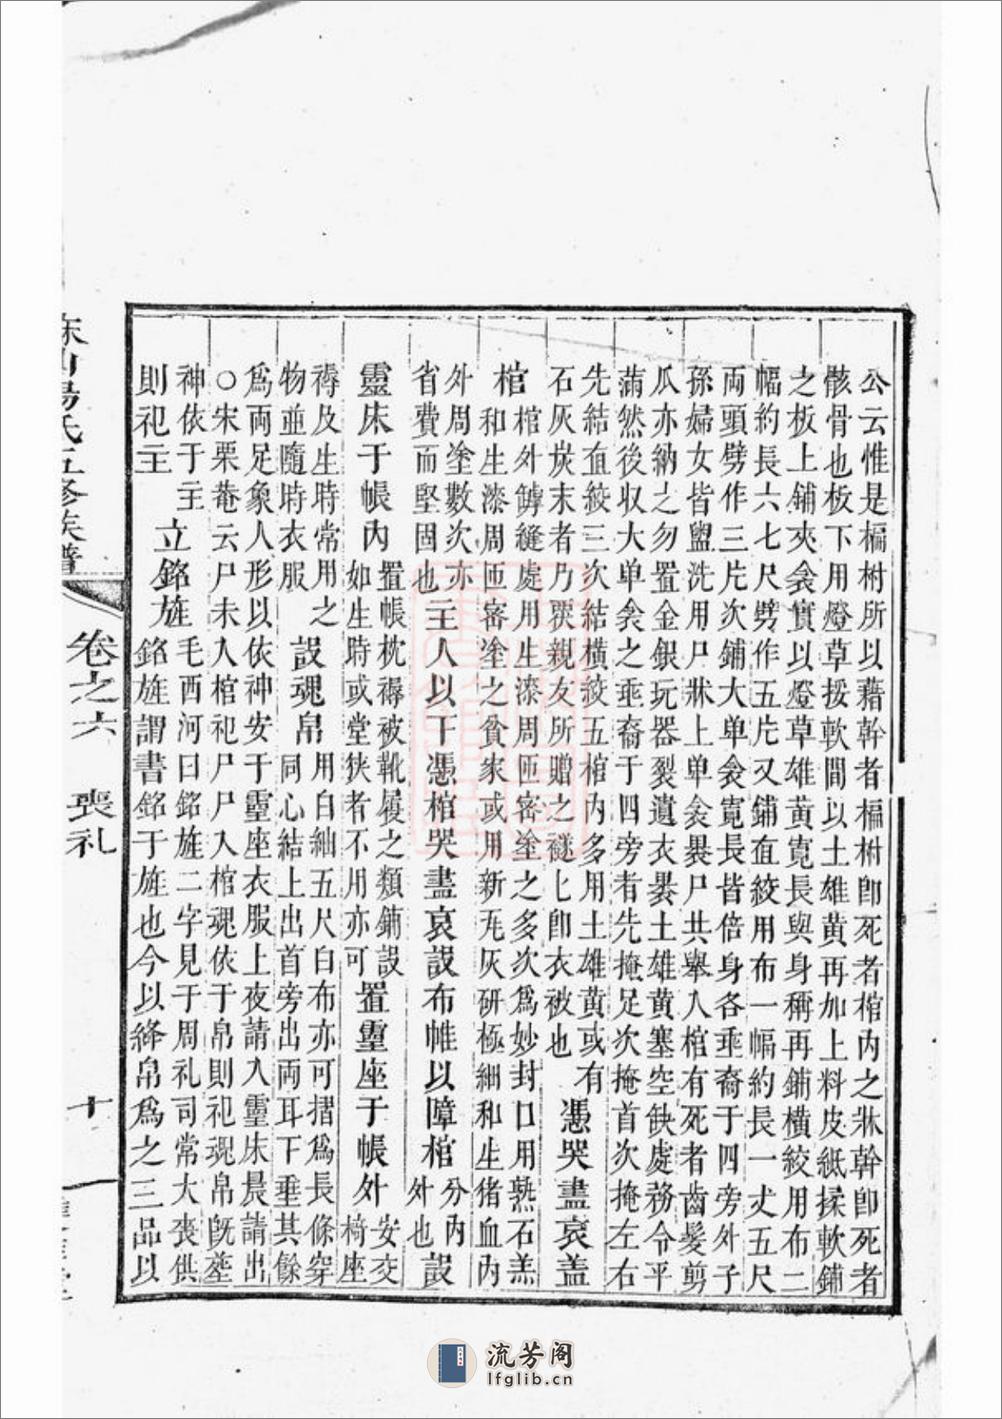 公云惟是楄柎所以藉幹者楄柎卽死者棺内之牀幹卽死者
骸骨也板下用燈草按軟間以土雄黃再加上料皮紙揉軟鋪
之板上鋪夾衾實以燈草雄黃寬長與身稱再鋪橫絞用布二
幅約長六七尺劈作五片又鋪直絞用布一幅約長一丈五尺
両頭劈作三片次鋪大单衾寬長皆倍身各乖裔于四旁外子
孫婦女皆盥洗用尸牀上单衾尸共舉入棺有死者齒髮剪
瓜亦納之勿置金銀玩器裂遺衣土雄黃塞空缺處務令平
滿然後収大单衾之乖裔于四旁者先掩足次掩首次掩左右
先結直絞三次結橫絞五棺内多用土雄黃或有
石灰炭末者乃親友所贈之襚匕卽衣被也
憑哭盡哀盖
棺
棺外罅縫處用生漆周匝密塗之多次爲妙封口用熟石羔
和生漆周匝密塗之貧家或用新瓦灰研極細和生猪血内
外周塗數次亦
省費而堅固也
主人以下憑棺哭盡哀設布帷以障棺
分内
外也
設
靈床于帳内
置帳枕褥被靴履之類鋪設
如生時或堂狹者不用亦可
置靈座于帳外
安交
椅座
褥及生時常用之
物並隨時衣服
設魂帛
用白紬五尺白布亦可摺爲長條穿
同心結上出首旁出両耳下垂其餘
爲両足象人形以依神安于靈座衣服上夜請入靈床晨請出
○宋栗菴云尸未入棺祀尸尸入棺魂依于帛則祀魂帛旣塟
神依于主
則祀主
立銘旌
毛西河曰銘旌二字見于周礼司常大喪供
銘旌謂書銘于旌也今以絳帛爲之三品以
氏五修族譜
卷之六
喪礼
十
流芳阁
lfglib.cn